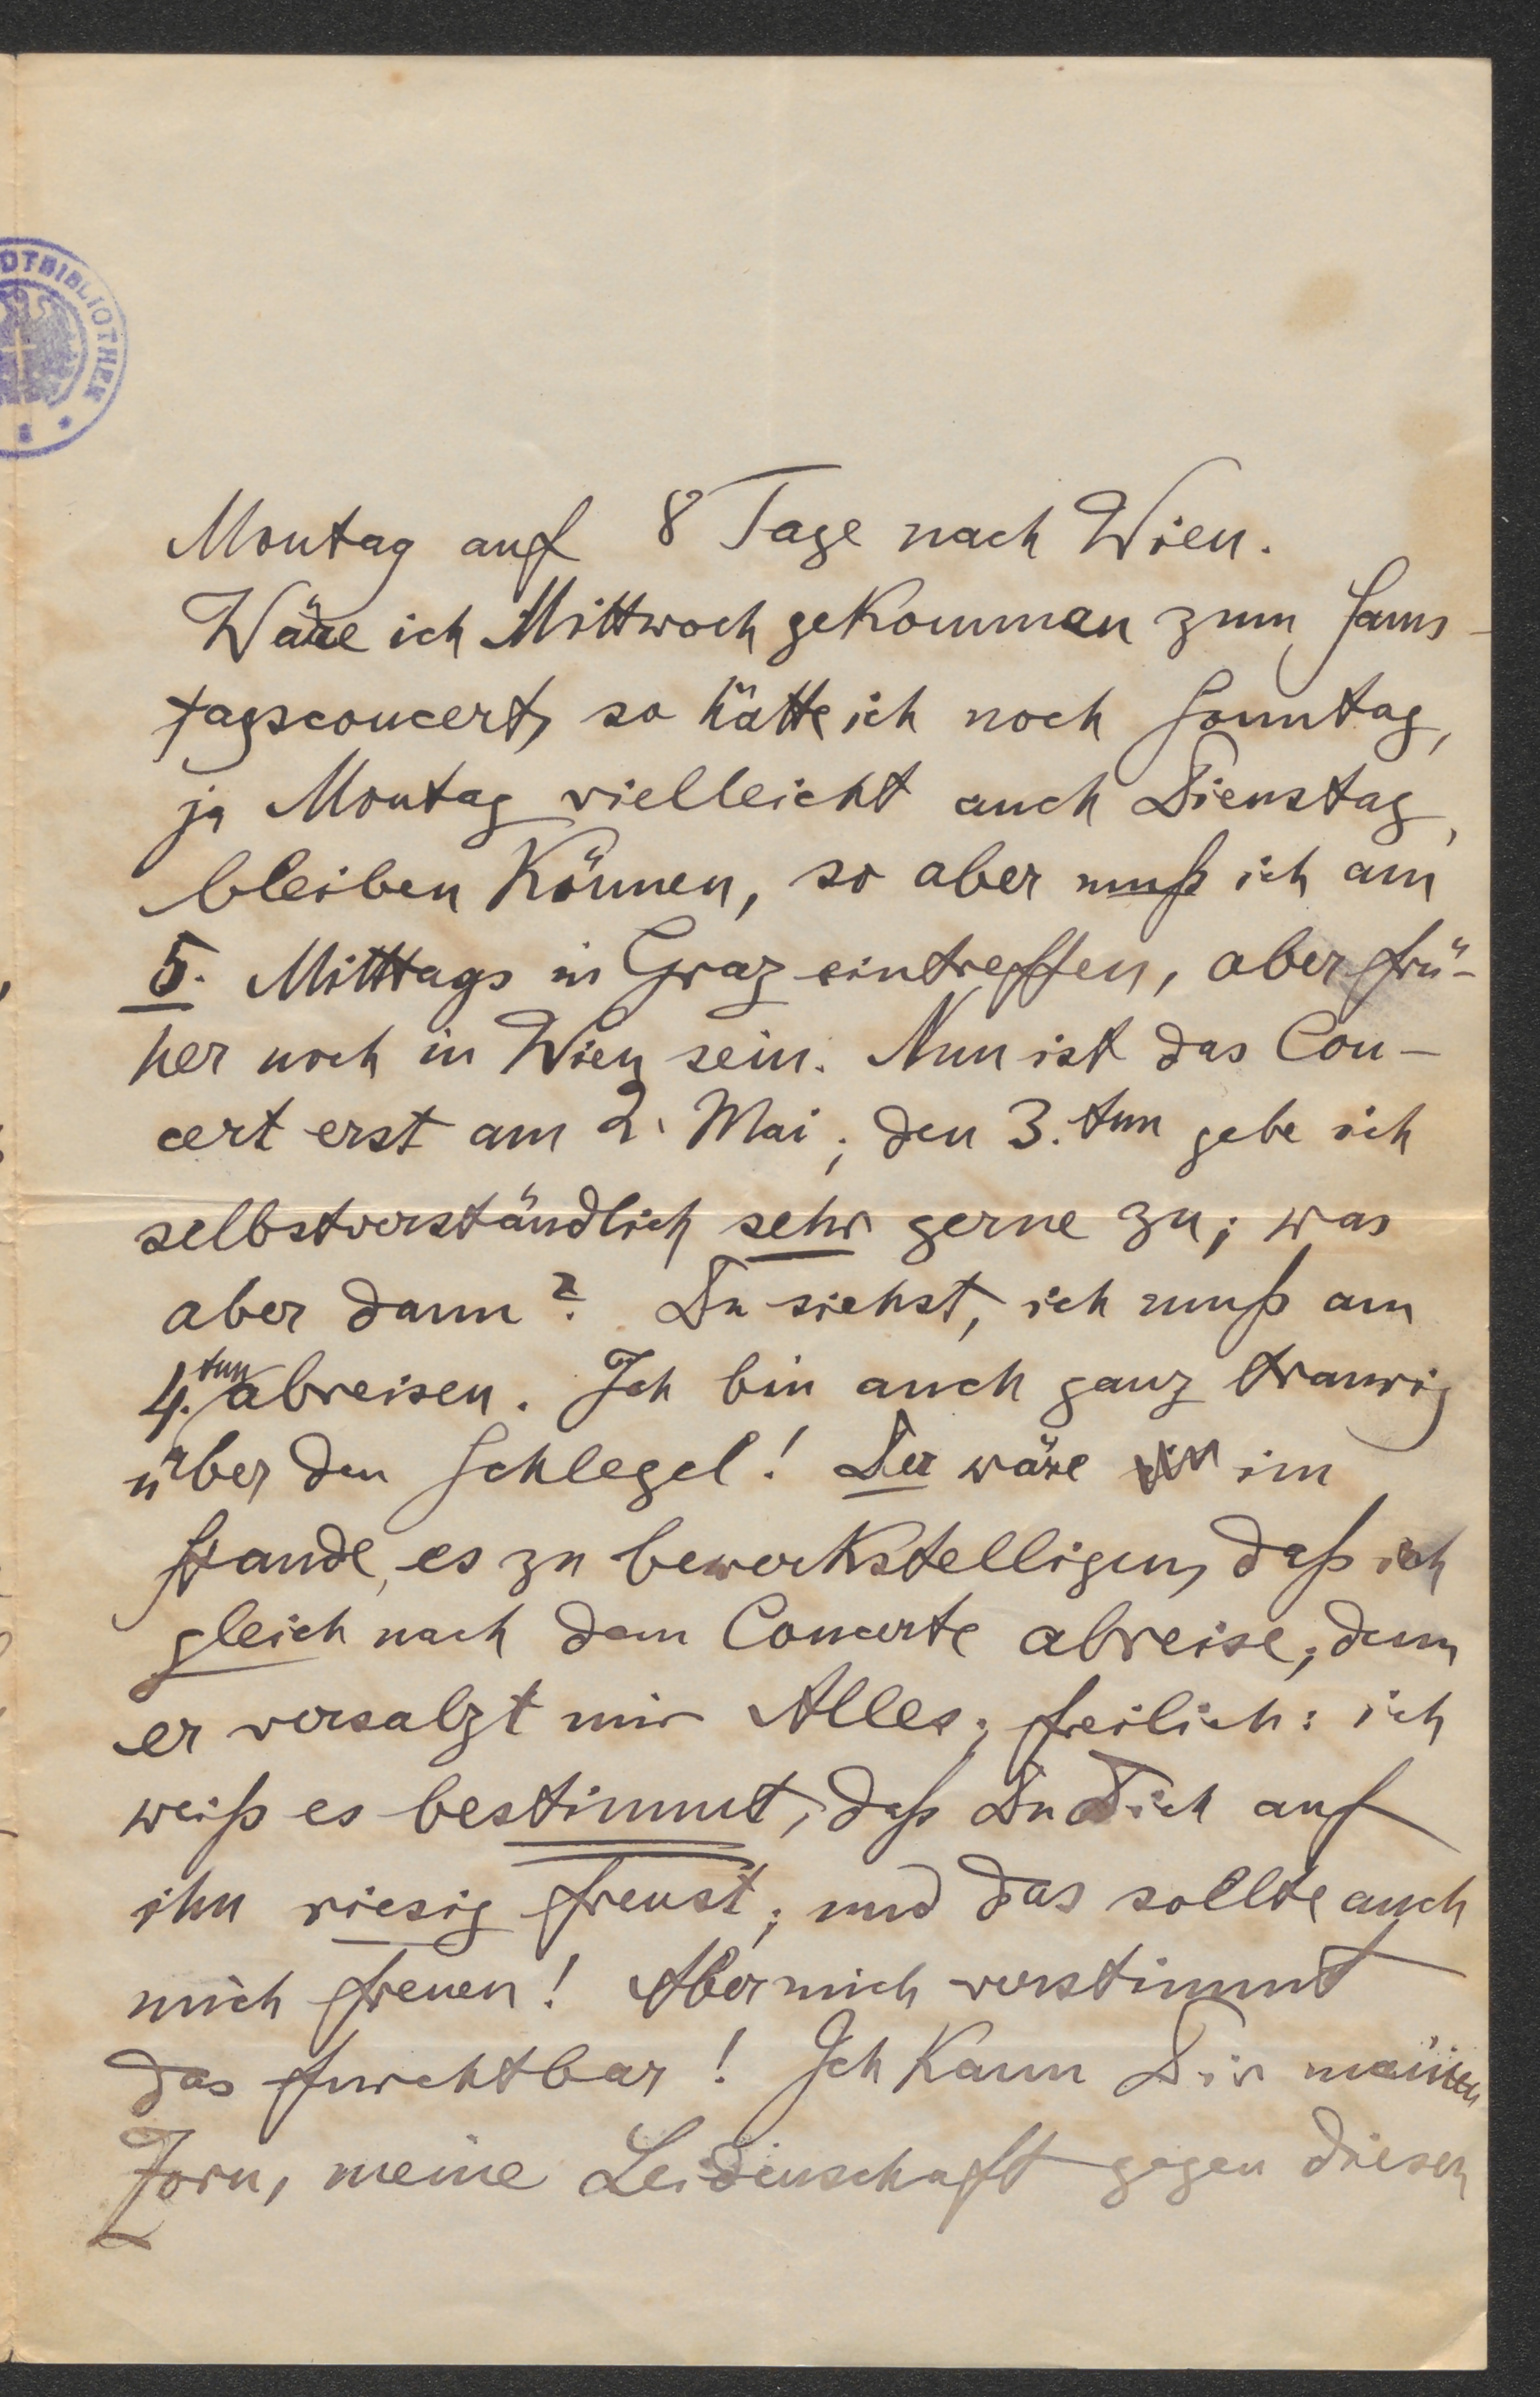 DTBIBLIOTHEK
Montag auf 8 Tage nach Wien.
Wäre ich Mittwoch gekommen zum Sams-
tagsconcert, so hätte ich noch Sonntag,
ja Montag vielleicht auch Dienstag,
bleiben können, so aber muß ich am
5. Mitttags in Graz eintreffen, aber frü-
her noch in Wien sein. Nun ist das Con-
cert erst am 2. Mai; den 3.ten gebe ich
selbstverständlich sehr gerne zu; was
aber dann? Du siehst, ich muß am
4.ten abreisen. Ich bin auch ganz traurig
über den Schlegel! Der wäre im
Stande, es zu bewerkstelligen, daß ich
gleich nach dem Concerte abreise; denn
er versalzt mir Alles; freilich: ich
weiß es bestimmt, daß Du Dich auf
ihn riesig freust; und das sollte auch
mich freuen! Aber mich verstimmt
das furchtbar! Ich kann Dir meinen
Zorn, meine Leidenschaft gegen diesen